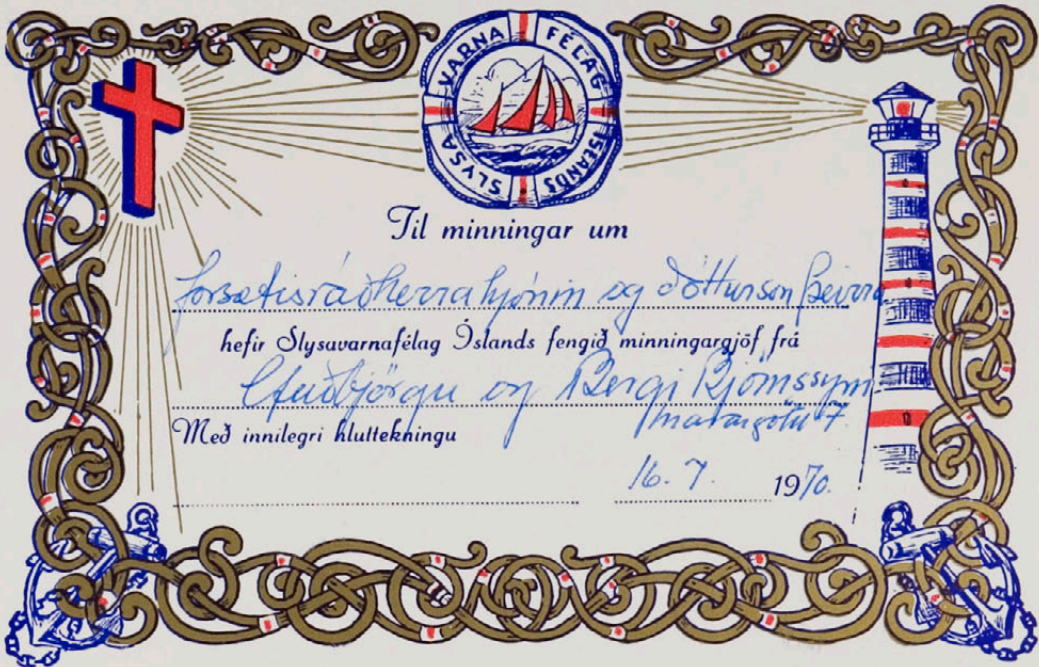 SLYSA VARNA FÉLAG ÍSLANDS
Til minningar um
forsætisráðherrahjónin og dótturson þeirra
hefir Slysavarnafélag Íslands fengið minningargjöf frá
og Bergi Björnssyni
7.
Með innilegri hluttekningu
16. 7. 1970.